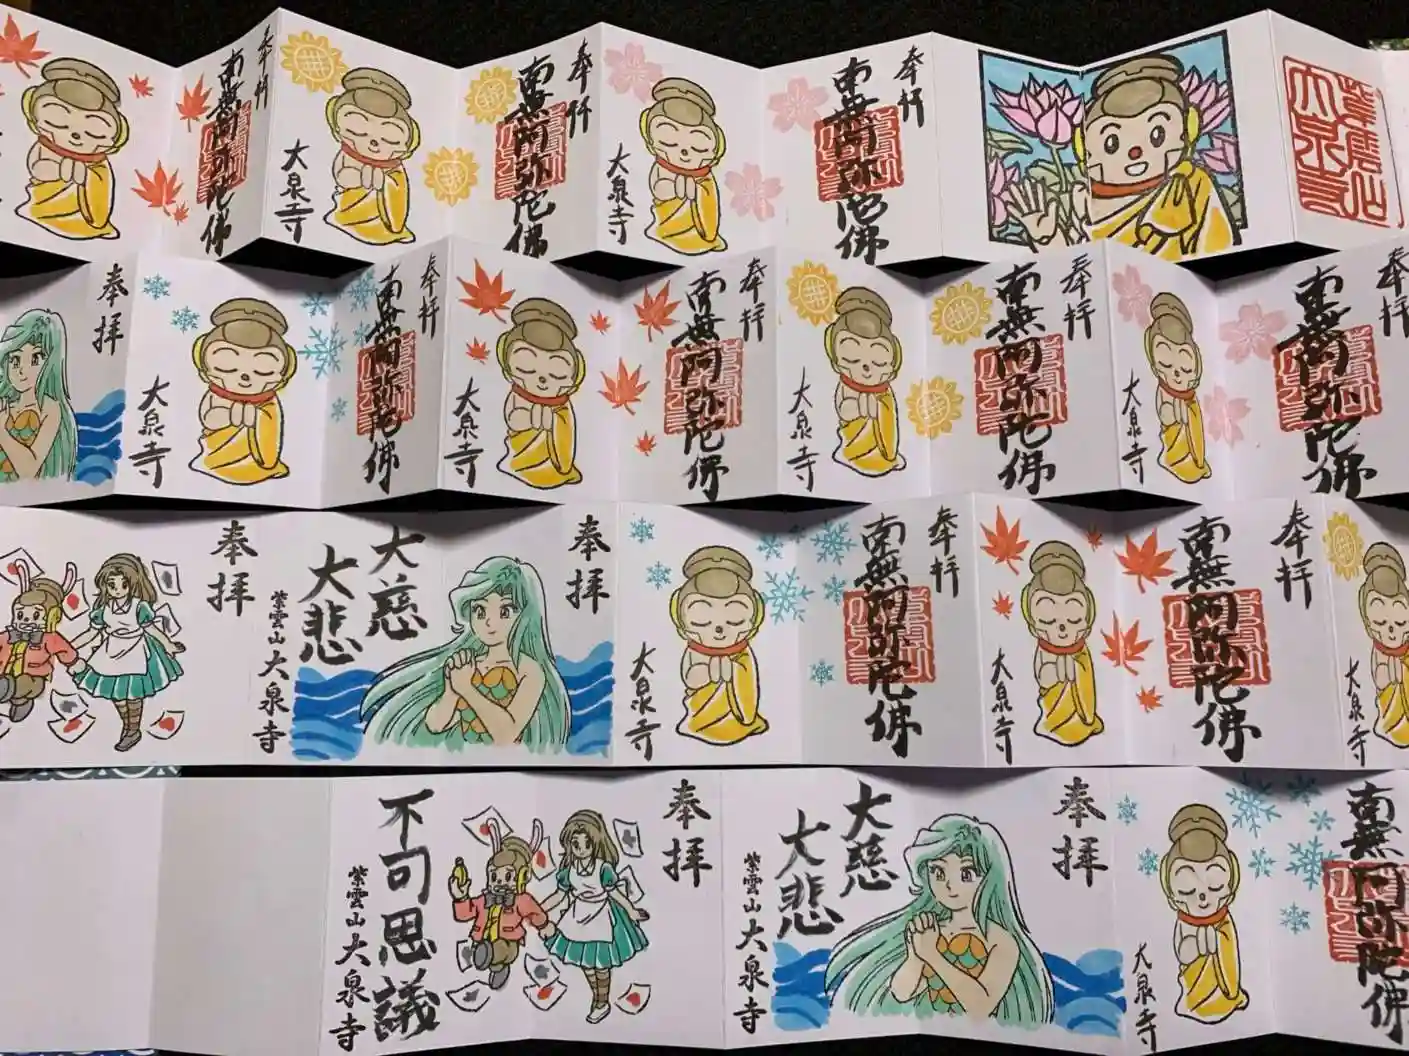 奉拝
南無阿弥陀佛
大泉寺
奉拝
南無阿弥陀佛
大泉寺
奉拝
南無阿弥陀佛
奉拝
南無阿弥陀佛
大泉寺
奉拝
南無阿弥陀佛
大泉寺
奉拝
南無阿弥陀佛
大泉寺
奉拝
南無阿弥陀佛
大泉寺
奉拝
大泉寺
奉拝
南無阿弥陀佛
大泉寺
奉拝
南無阿弥陀佛
大泉寺
奉拝
大慈
大悲
紫雲山大泉寺
奉拝
南無阿弥陀佛
大泉寺
奉拝
大慈
大悲
紫雲山大泉寺
奉拝
不可思議
紫雲山大泉寺